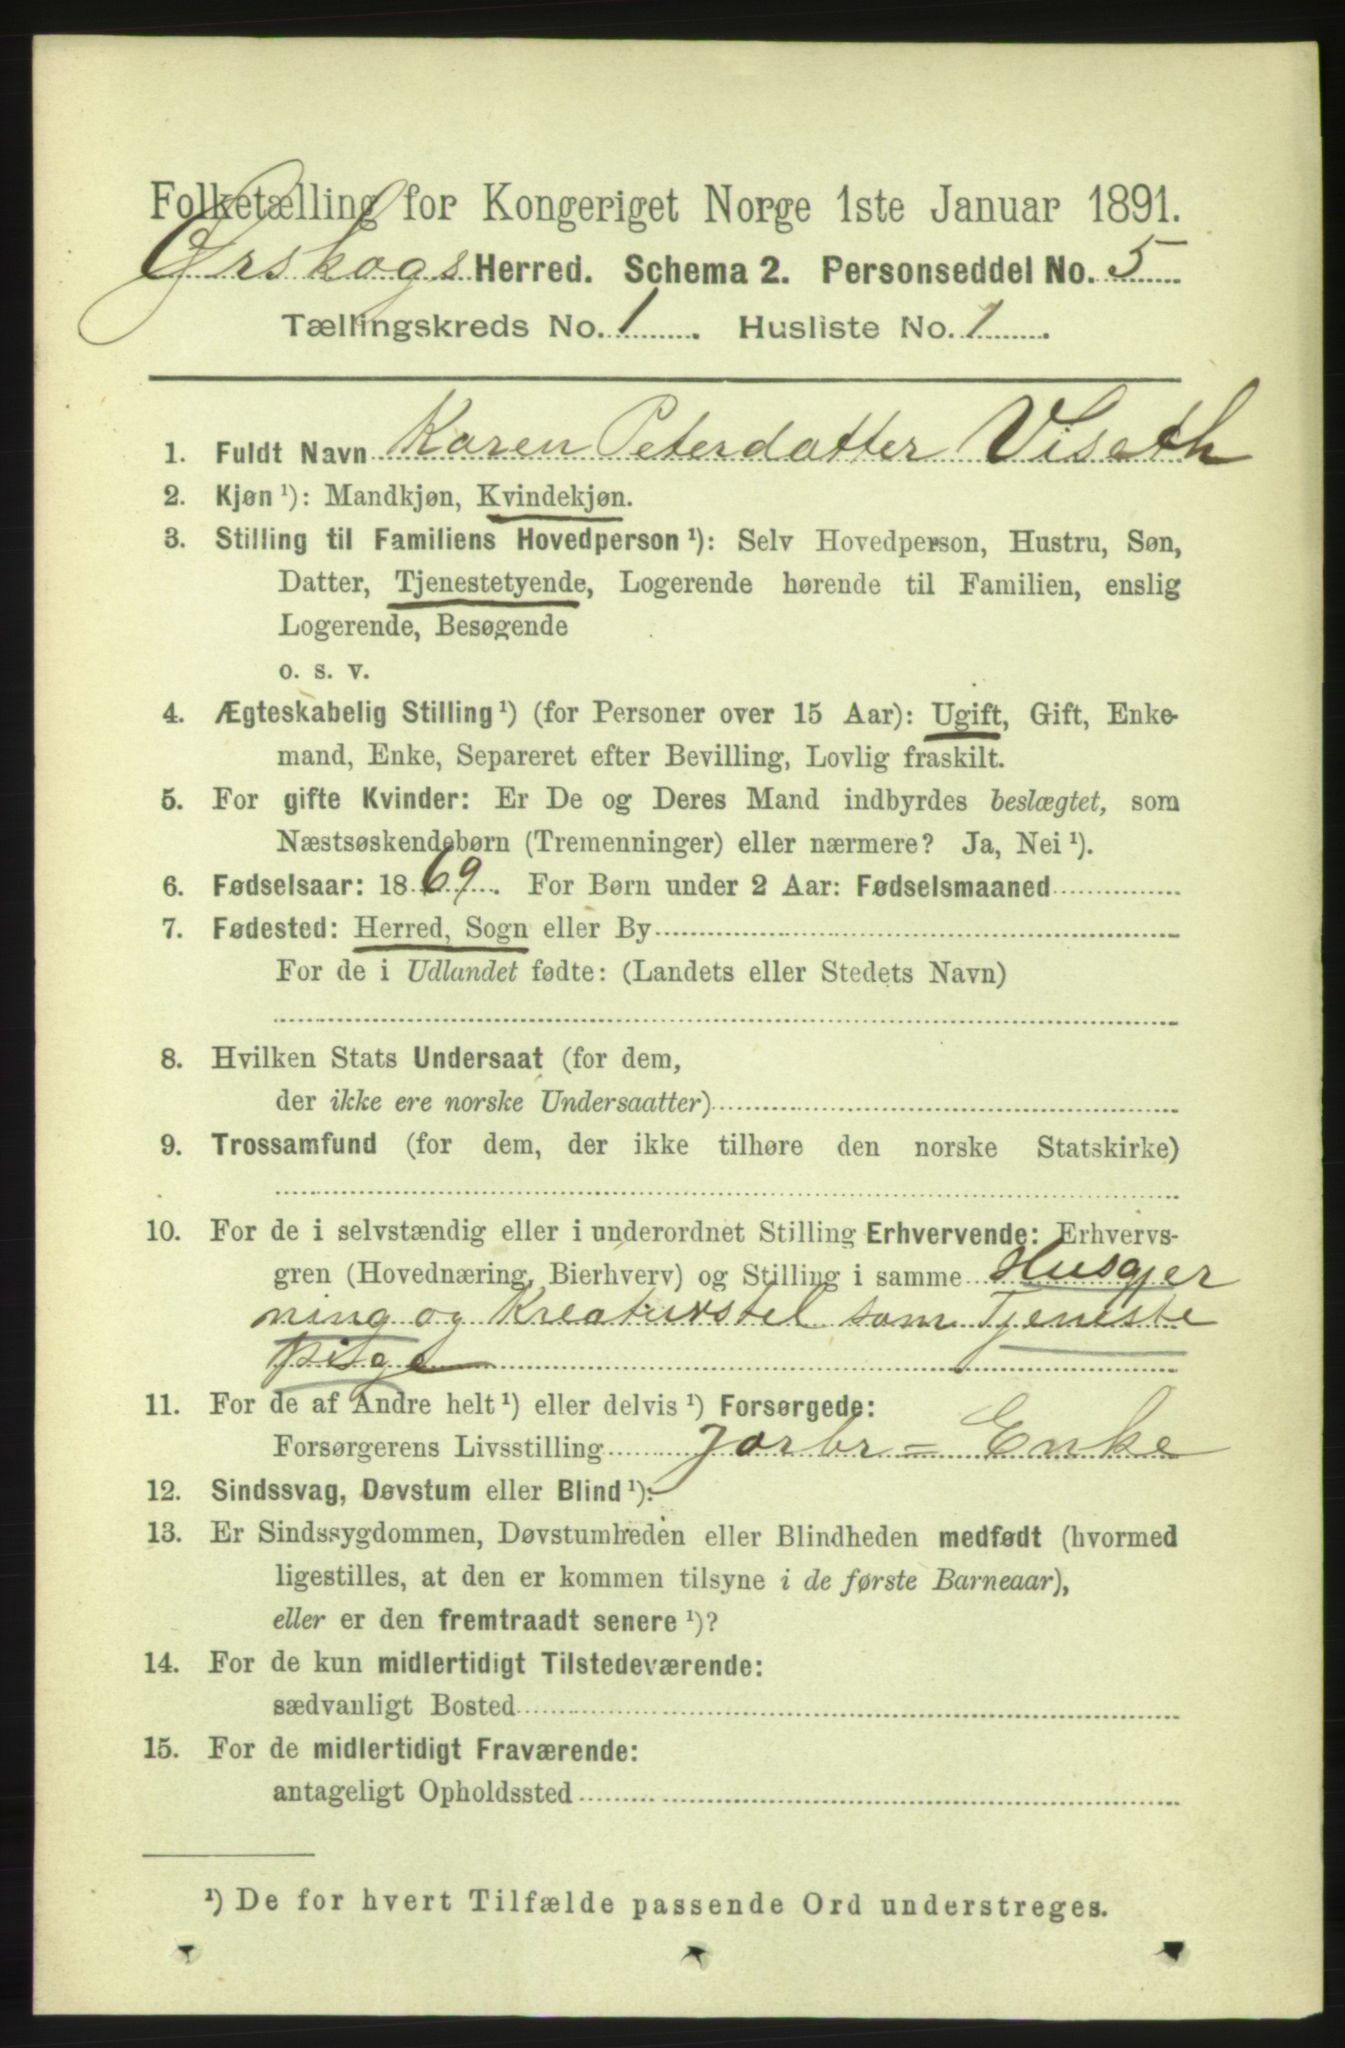 Folketælling for Kongeriget Norge 1ste Januar 1891.
Ørskogs Herred. Schema 2. Personseddel No. 5
Tællingskreds No. 1. Husliste No. 1.
1. Fuldt Navn Karen Peterdatter Viseth
2. Kjøn ¹): Mandkjøn, Kvindekjøn.
3. Stilling til Familiens Hovedperson ¹): Selv Hovedperson, Hustru, Søn,
Datter, Tjenestetyende, Logerende hørende til Familien, enslig
Logerende, Besøgende
o. s. v.
4. Ægteskabelig Stilling ¹) (for Personer over 15 Aar): Ugift, Gift, Enke-
mand, Enke, Separeret efter Bevilling, Lovlig fraskilt.
5. For gifte Kvinder: Er De og Deres Mand indbyrdes beslægtet, som
Næstsøskendebørn (Tremenninger) eller nærmere? Ja, Nei ¹).
6. Fødselsaar: 1869. For Børn under 2 Aar: Fødselsmaaned
7. Fødested: Herred, Sogn eller By
For de i Udlandet fødte: (Landets eller Stedets Navn)
8. Hvilken Stats Undersaat (for dem,
der ikke ere norske Undersaatter)
9. Trossamfund (for dem, der ikke tilhøre den norske Statskirke)
10. For de i selvstændig eller i underordnet Stilling Erhvervende: Erhvervs-
gren (Hovednæring, Bierhverv) og Stilling i samme Husgjer
ning og Kreaturstel som Tjeneste
pige
11. For de af Andre helt ¹) eller delvis ¹) Forsørgede:
Forsørgerens Livsstilling Jorbr = Enke
12. Sindssvag, Døvstum eller Blind ¹):
13. Er Sindssygdommen, Døvstumheden eller Blindheden medfødt (hvormed
ligestilles, at den er kommen tilsyne i de første Barneaar),
eller er den fremtraadt senere ¹)?
14. For de kun midlertidigt Tilstedeværende:
sædvanligt Bosted
15. For de midlertidigt Fraværende:
antageligt Opholdssted
¹) De for hvert Tilfælde passende Ord understreges.